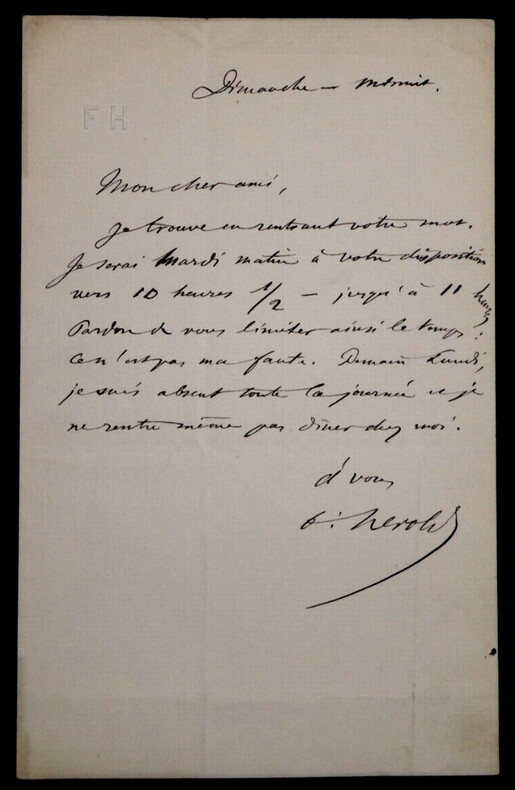 Dimanche — minuit.
F H
Mon cher ami,
Je trouve en rentrant votre mot.
Je serai Mardi matin à votre disposition
vers 10 heures 1/2 — jusqu'à 11 heures.
Pardon de vous limiter ainsi le temps :
ce n'est pas ma faute. Demain Lundi,
je suis absent toute la journée et je
ne rentre même pas dîner chez moi.
à vous
Herold